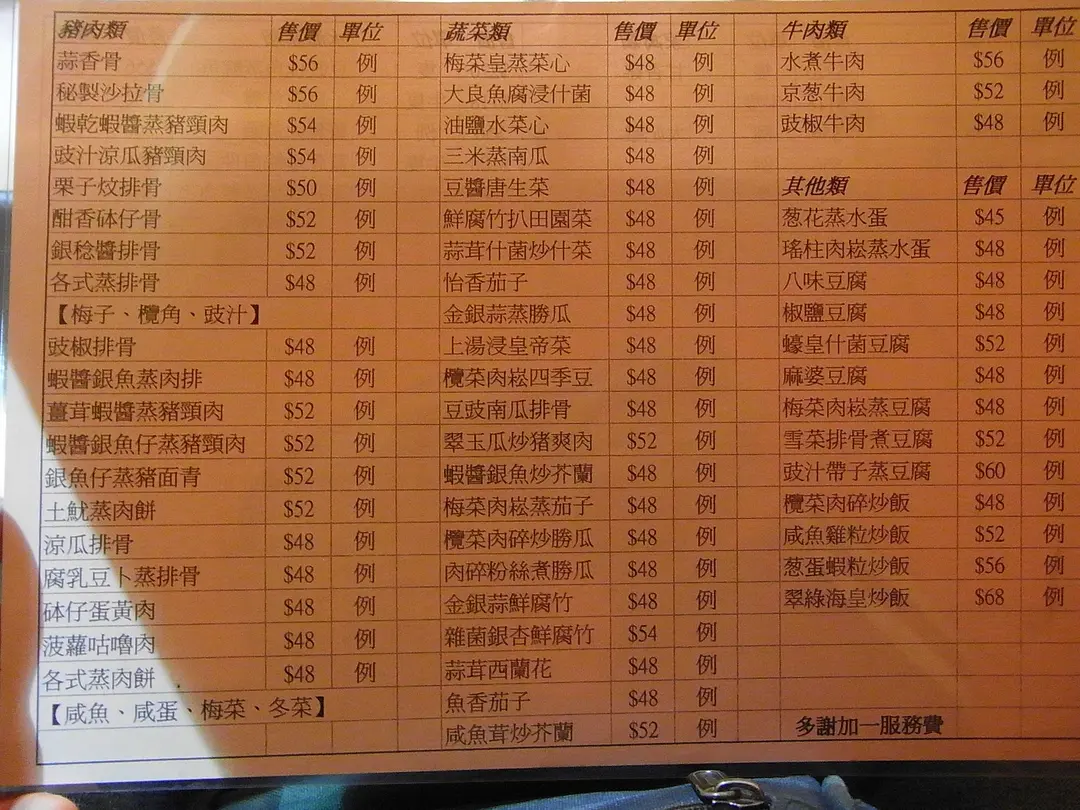 豬肉類 售價 單位
蒜香骨 $56 例
秘製沙拉骨 $56 例
蝦乾蝦醬蒸豬頸肉 $54 例
豉汁涼瓜豬頸肉 $54 例
栗子炆排骨 $50 例
酣香砵仔骨 $52 例
銀稔醬排骨 $52 例
各式蒸排骨 $48 例
【梅子、欖角、豉汁】
豉椒排骨 $48 例
蝦醬銀魚蒸肉排 $48 例
薑茸蝦醬蒸豬頸肉 $52 例
蝦醬銀魚仔蒸豬頸肉 $52 例
銀魚仔蒸豬面青 $52 例
土魷蒸肉餅 $52 例
涼瓜排骨 $48 例
腐乳豆卜蒸排骨 $48 例
砵仔蛋黃肉 $48 例
菠蘿咕嚕肉 $48 例
各式蒸肉餅 $48 例
【咸魚、咸蛋、梅菜、冬菜】
蔬菜類 售價 單位
梅菜皇蒸菜心 $48 例
大良魚腐浸什菌 $48 例
油鹽水菜心 $48 例
三米蒸南瓜 $48 例
豆醬唐生菜 $48 例
鮮腐竹扒田園菜 $48 例
蒜茸什菌炒什菜 $48 例
怡香茄子 $48 例
金銀蒜蒸勝瓜 $48 例
上湯浸皇帝菜 $48 例
欖菜肉崧四季豆 $48 例
豆豉南瓜排骨 $48 例
翠玉瓜炒猪爽肉 $52 例
蝦醬銀魚炒芥蘭 $48 例
梅菜肉崧蒸茄子 $48 例
欖菜肉碎炒勝瓜 $48 例
肉碎粉絲煮勝瓜 $48 例
金銀蒜鮮腐竹 $48 例
雜菌銀杏鮮腐竹 $54 例
蒜茸西蘭花 $48 例
魚香茄子 $48 例
咸魚茸炒芥蘭 $52 例
牛肉類 售價 單位
水煮牛肉 $56 例
京葱牛肉 $52 例
豉椒牛肉 $48 例
其他類 售價 單位
葱花蒸水蛋 $45 例
瑤柱肉崧蒸水蛋 $48 例
八味豆腐 $48 例
椒鹽豆腐 $48 例
蠔皇什菌豆腐 $52 例
麻婆豆腐 $48 例
梅菜肉崧蒸豆腐 $48 例
雪菜排骨煮豆腐 $52 例
豉汁帶子蒸豆腐 $60 例
欖菜肉碎炒飯 $48 例
咸魚雞粒炒飯 $52 例
葱蛋蝦粒炒飯 $56 例
翠綠海皇炒飯 $68 例
多謝加一服務費